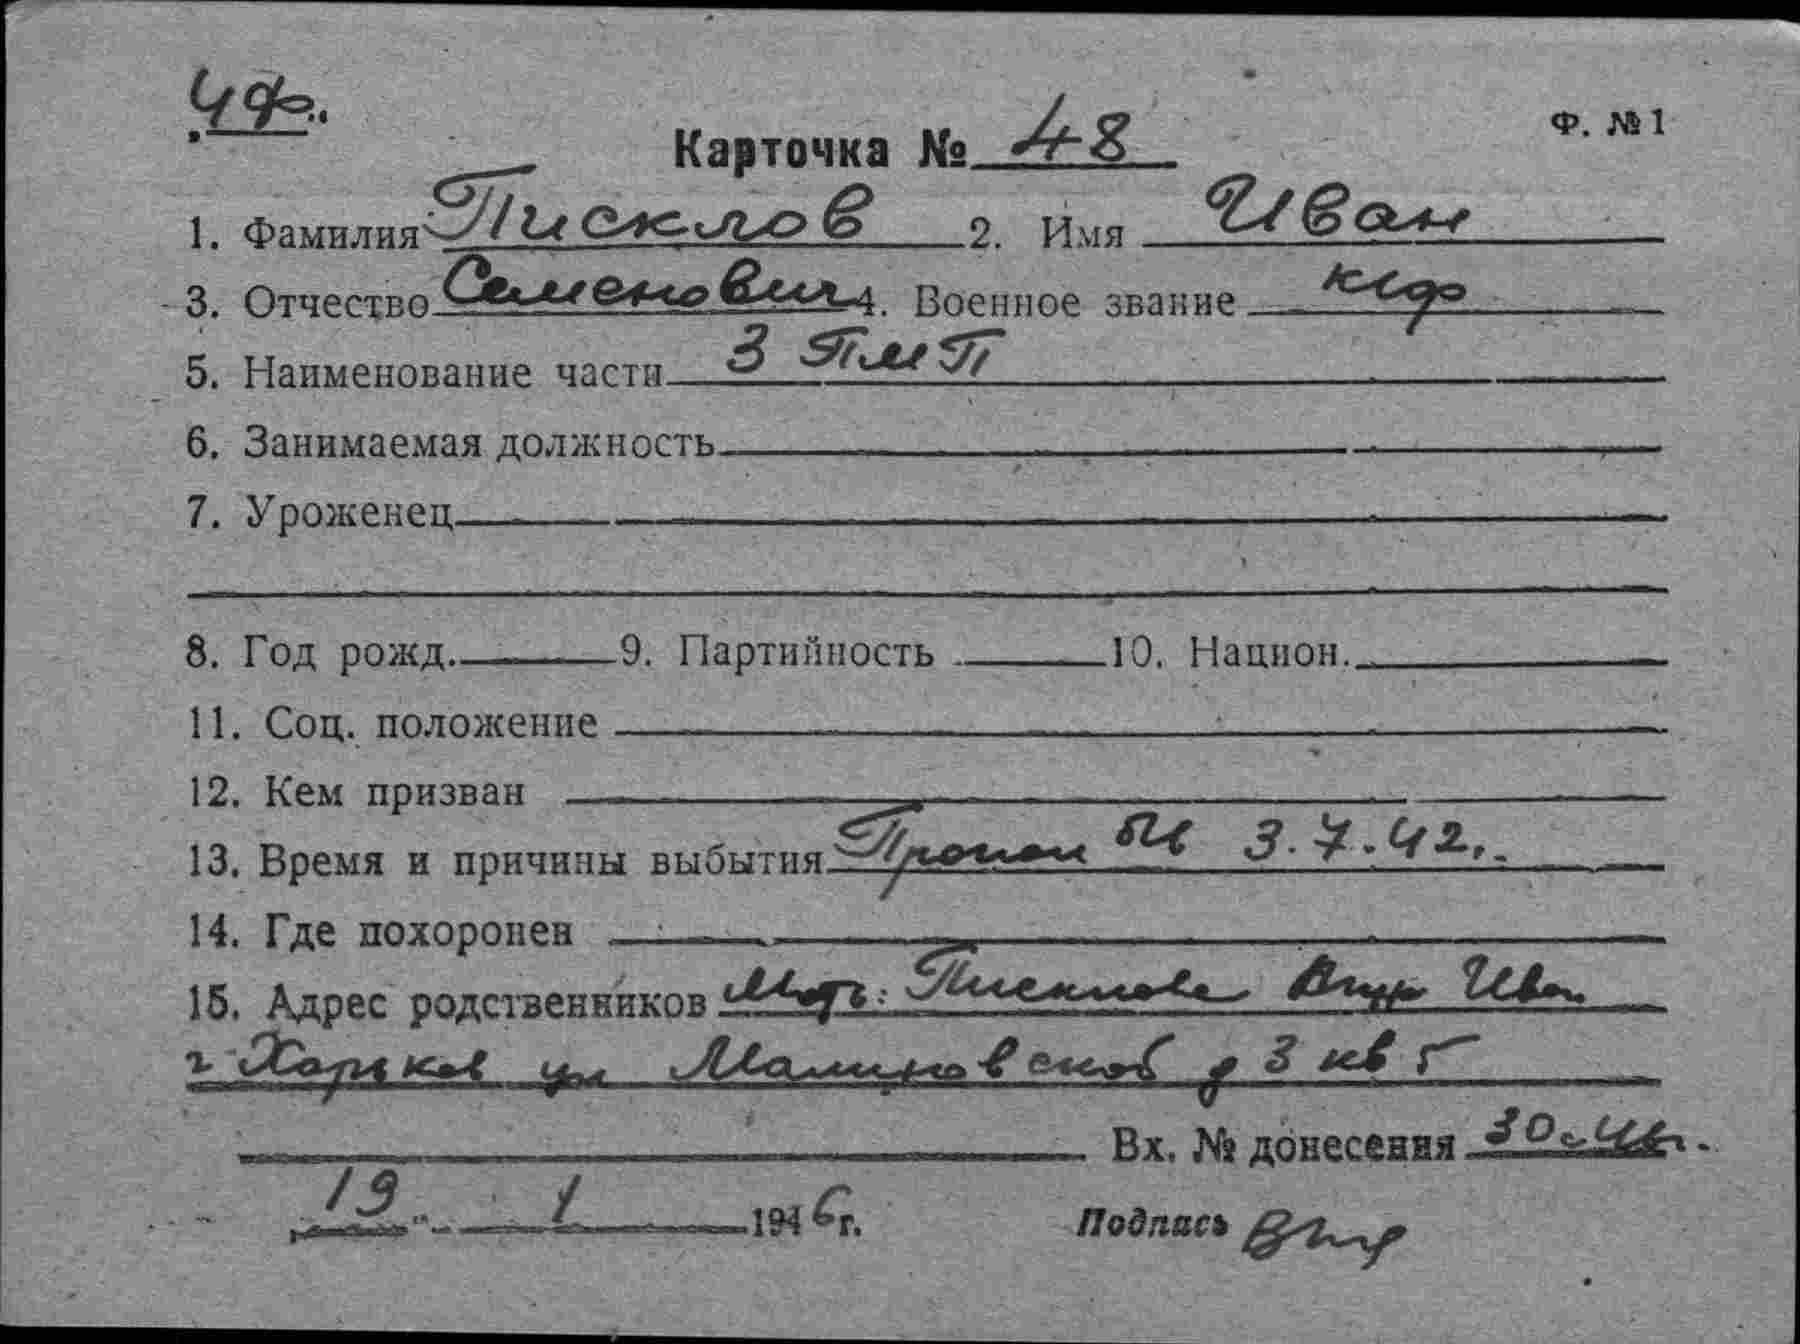 ЧФ.
Карточка № 48
Ф. № 1
1. Фамилия Писклов 2. Имя Иван
3. Отчество Семенович 4. Военное звание кгф
5. Наименование части 3 ПМП
6. Занимаемая должность
7. Уроженец
8. Год рожд. 9. Партийность 10. Национ.
11. Соц. положение
12. Кем призван
13. Время и причины выбытия 3.7.42.
14. Где похоронен
15. Адрес родственников Ив.
г Харьков ул Малиновской д 3 кв 5
Вх. № донесения
19 1 1946г. Подпись